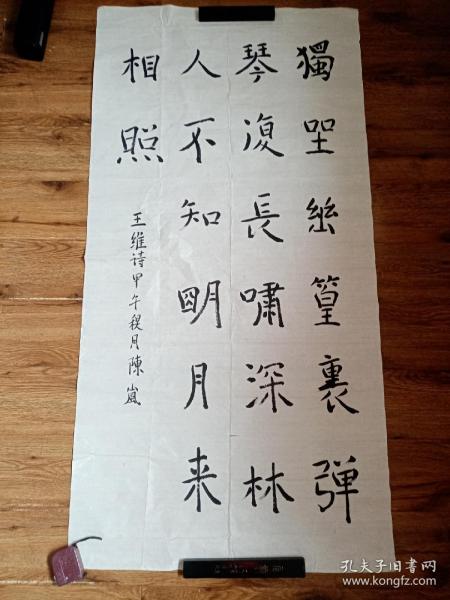 獨坐幽篁裏弹
琴復長嘯深林
人不知明月来
相照
王维诗甲午秋月陳嵐
孔夫子旧书网
www.kongfz.com